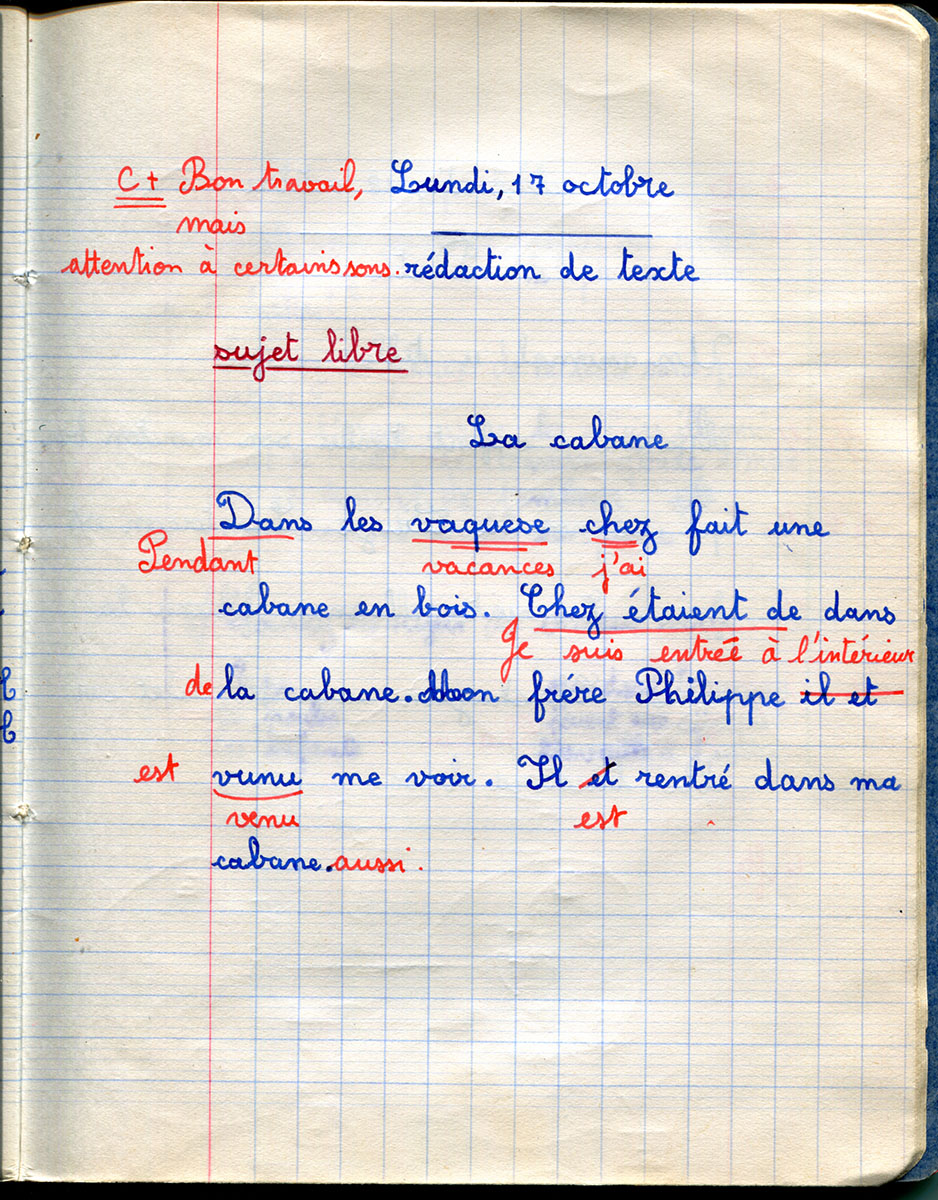 C+ Bon travail, Lundi, 17 octobre
mais
attention à certains sons. rédaction de texte
sujet libre
La cabane
Dans les vaquese chez fait une
Pendant vacances j'ai
cabane en bois. Chez étaient de dans
Je suis entrée à l'intérieur
de la cabane. Mon frére Philippe il et
est vunu me voir. Il et rentré dans ma
venu est
cabane. aussi.